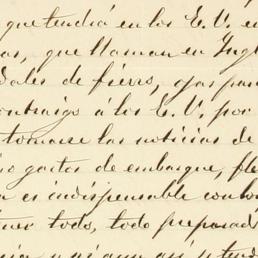 que tendrá en los E. V. en
as, que llaman en Ingl
dales de fierro, ojas par
ontraigo á los E. V. por
tomarse las noticias de
o gastos de embarque, fle
a es indispensable con
ner todo, todo preparad